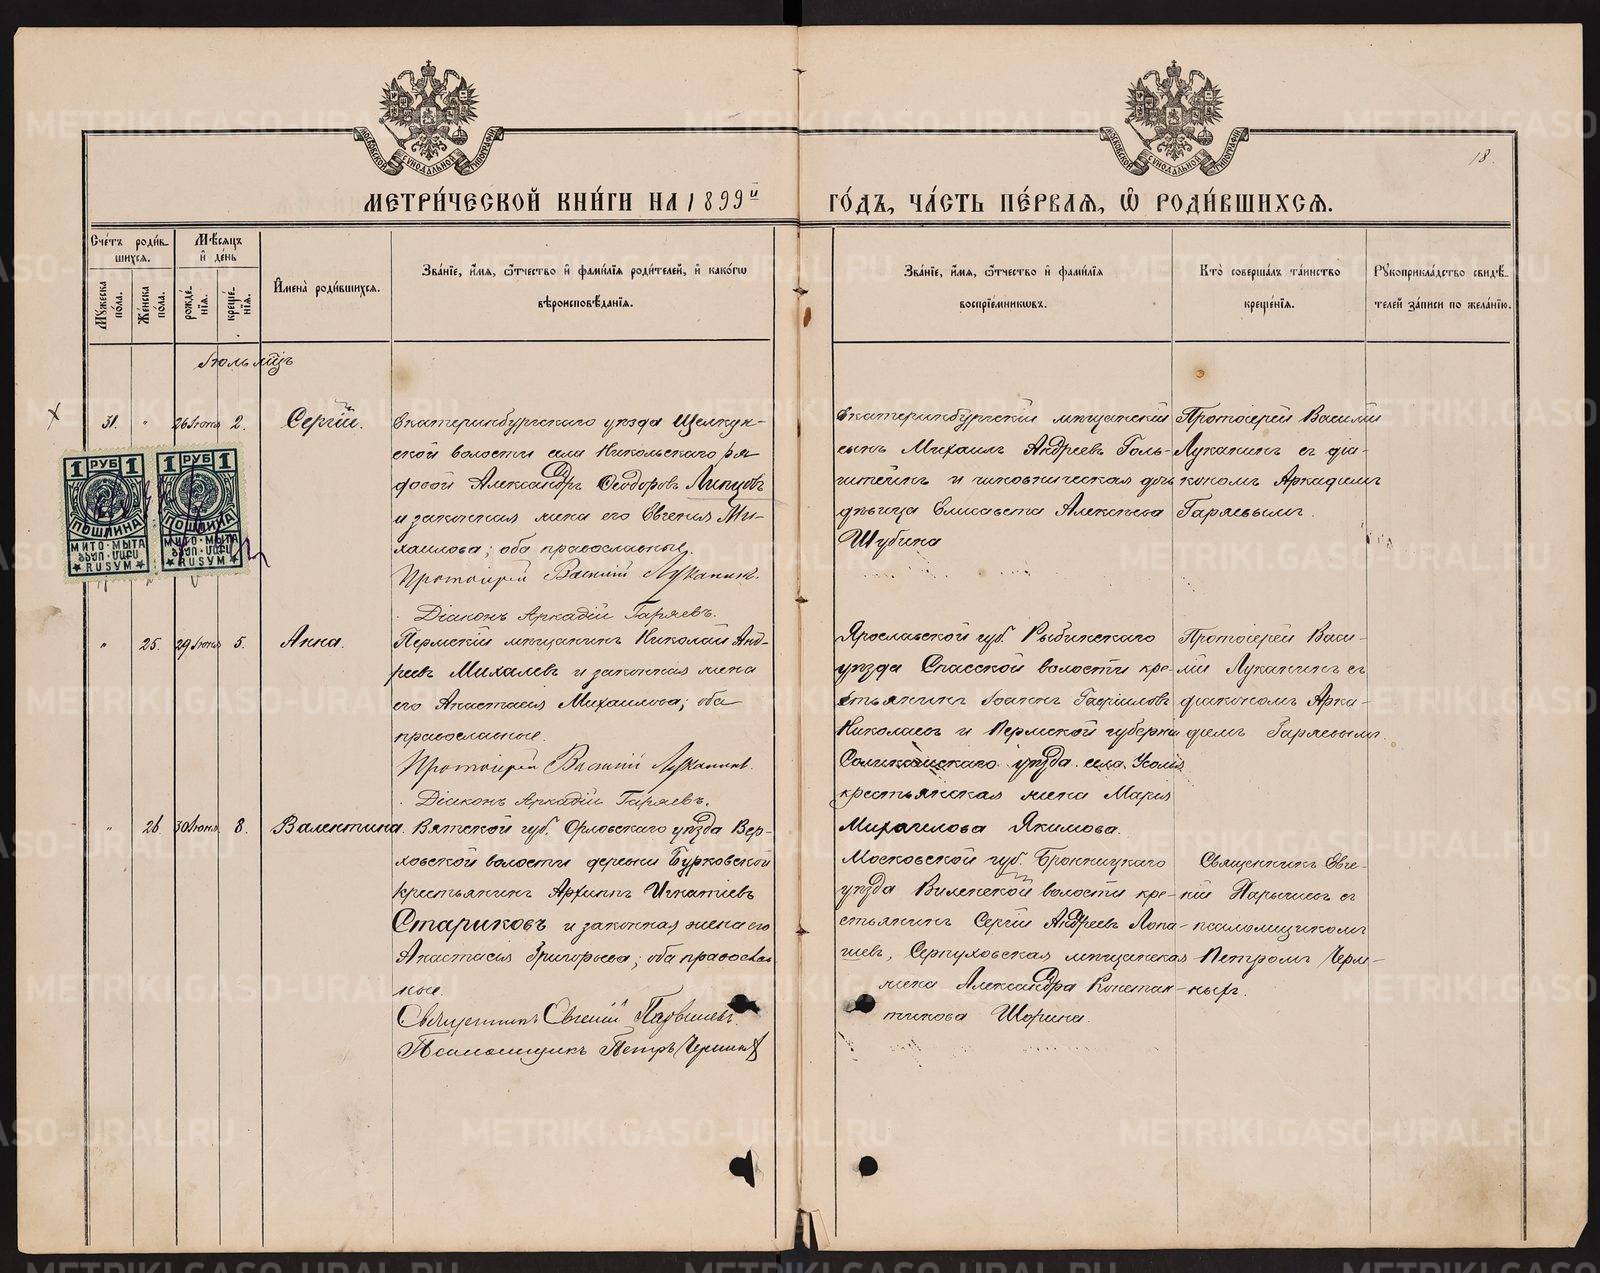 МЕТРИ́ЧЕСКОЙ КНИ́ГИ НА 1899й
ГО́ДЪ, ЧА́СТЬ ПЕ́РВАЯ, Ѡ РОДИ́ВШИХСЯ.
18.
Сче́тъ роди́в-
шихся.
Му́жеска
по́ла.
Же́нска
по́ла.
Мѣ́сяцъ
и де́нь
рожде́-
нія.
креще́-
нія.
Имена̀ роди́вшихся.
Зва́ніе, и́мя, о́тчество и фами́лія роди́телей, и како́гѡ
вѣроисповѣ́данія.
Зва́ніе, и́мя, о́тчество и фами́лія
воспріе́мникѡвъ.
Кто̀ соверша́лъ та́инство
креще́нія.
Рукоприкла́дство свидѣ́-
телей за́писи по жела́нію.
Іюль мцъ
31. " 26 Іюня 2. Сергій.
Екатеринбургскаго уѣзда Щелкун-
ской волости села Никольскаго ря
довой Александръ Ѳеодоровъ Липцовъ
и законная жена его Евгенія Ми-
хаилова; оба православные.
Протоіерей Василій Луканинъ.
Діаконъ Аркадій Гаряевъ.
Екатеринбургскій мѣщанскій
сынъ Михаилъ Андреевъ Голь-
штейнъ и чиновническая дочь
дѣвица Елисавета Алексѣева
Шубина
Протоіерей Василій
Луканинъ съ діа-
кономъ Аркадіемъ
Гаряевымъ.
" 25. 29 Іюня 5. Анна.
Пермскій мѣщанинъ Николай Анд-
реевъ Михалевъ и законная жена
его Анастасія Михаилова; оба
православные.
Протоіерей Василій Луканинъ.
Діаконъ Аркадій Гаряевъ.
Ярославской губ. Рыбинскаго
уѣзда Спасской волости кре-
стьянинъ Іоаннъ Гавріиловъ
Николаевъ и Пермской губерніи
Соликамскаго уѣзда села Усолія
крестьянская жена Марія
Михаилова Якимова.
Протоіерей Васи-
лій Луканинъ съ
діакономъ Арка-
діемъ Гаряевымъ.
" 26. 30 Іюня 8. Валентина.
Вятской губ. Орловскаго уѣзда Вер-
ховской волости деревни Бурковской
крестьянинъ Архиппъ Игнатіевъ
Стариковъ и законная жена его
Анастасія Григорьева; оба православ
ные.
Священникъ Евгеній
Псаломщикъ Петръ
Московской губ. Бронницкаго
уѣзда волости кре-
стьянинъ Сергій Андреевъ Лопа-
чевъ, Серпуховская мѣщанская
жена Александра Констан-
тинова Шорина.
Священникъ Евге-
ній съ
псаломщикомъ
Петромъ Черм-
нымъ.
1 РУБ 1
ПОШЛИНА
МИТО·МЫТА
RUSYM
1 РУБ 1
ПОШЛИНА
МИТО·МЫТА
RUSYM
МОСКОВСКОЙ СУНОДАЛЬНОЙ ТИПОГРАФІИ
МОСКОВСКОЙ СУНОДАЛЬНОЙ ТИПОГРАФІИ
METRIKI.GASO-URAL.RU